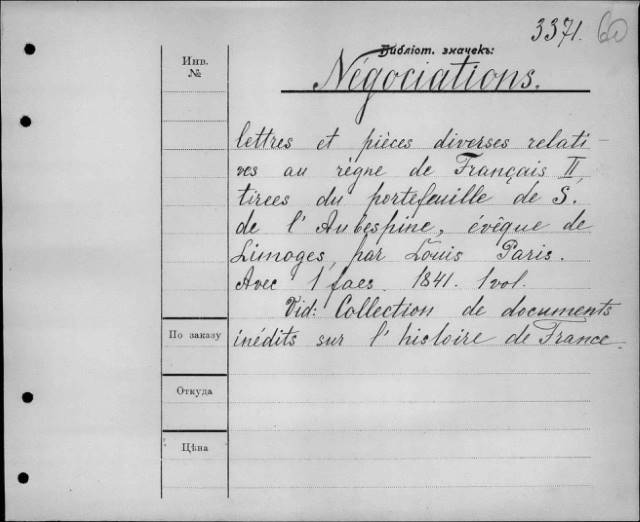 3371. 60
Библіот. значекъ:
Инв.
№
Négociations.
lettres et pièces diverses relati-
ves au règne de Français II,
tirées du portefeuille de S.
de l'Aubespine, évêque de
Limoges, par Louis Paris.
Avec 1 facs. 1841. 1 vol.
Vid: Collection de documents
По заказу
inédits sur l'histoire de France.
Откуда
Цѣна